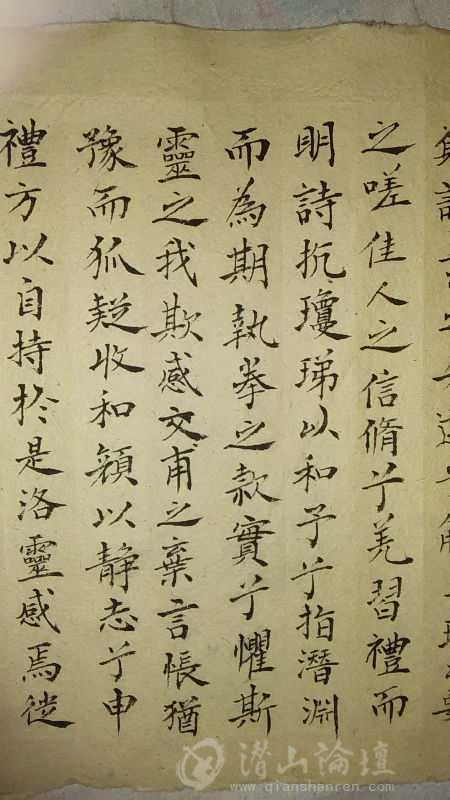 之嗟佳人之信脩兮羌習禮而
明詩抗瓊珶以和予兮指潛淵
而為期執拳之款實兮懼斯
靈之我欺感交甫之棄言悵猶
豫而狐疑收和顏以靜志兮申
禮方以自持於是洛靈感焉徙
潜山論壇
www.qianshanren.com